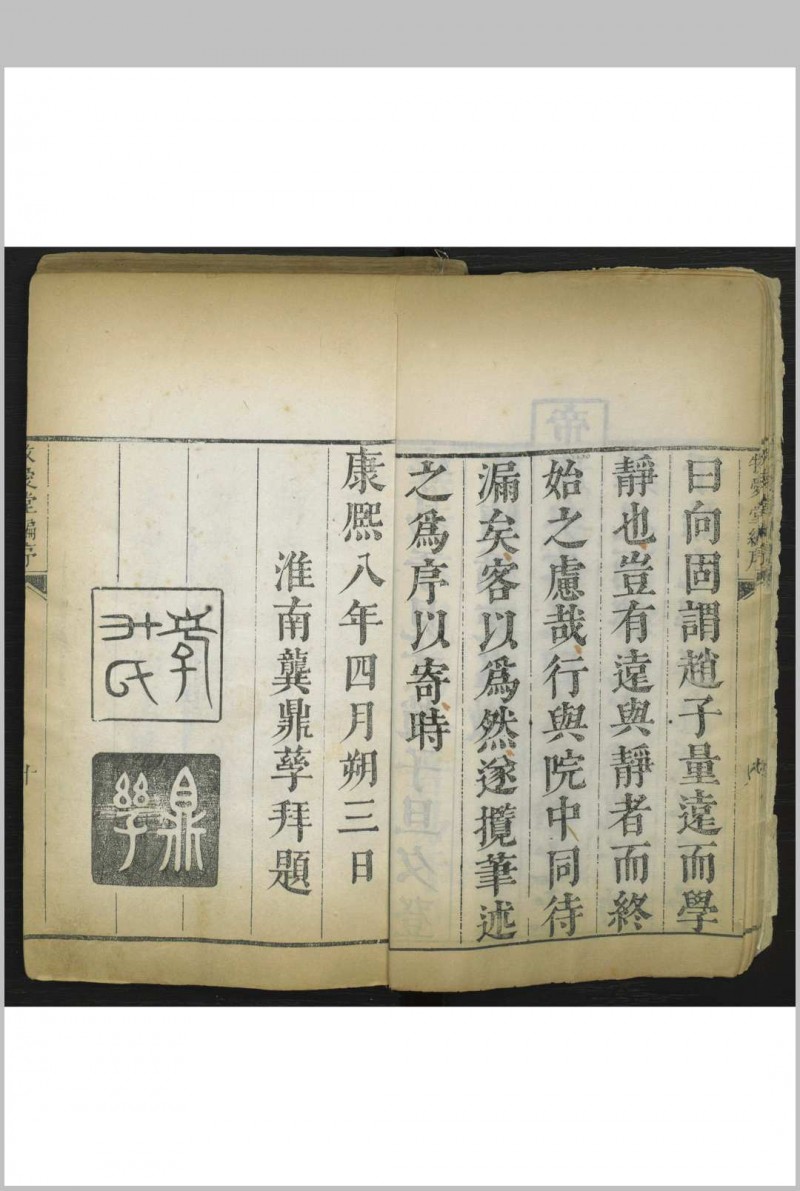 曰向固謂趙子量遠而學
靜也豈有遠與靜者而終
始之慮哉行與院中同待
漏矣客以爲然遂攬筆述
之爲序以寄時
康熙八年四月朔三日
淮南龔鼎孳拜題
孝升氏
鼎孳
愛堂編序
帝